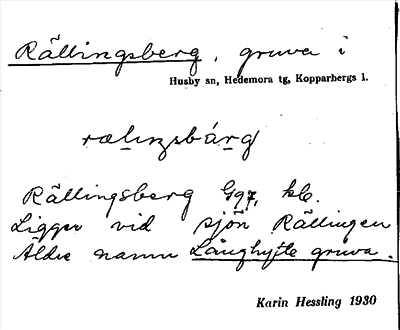 Rällingsberg, gruva i
Husby sn, Hedemora tg, Kopparbergs l.
rælıŋsbárg
Rällingsberg Gg7, kb.
Ligger vid sjön Rällingen
Äldre namn Långhytte gruva.
Karin Hessling 1930